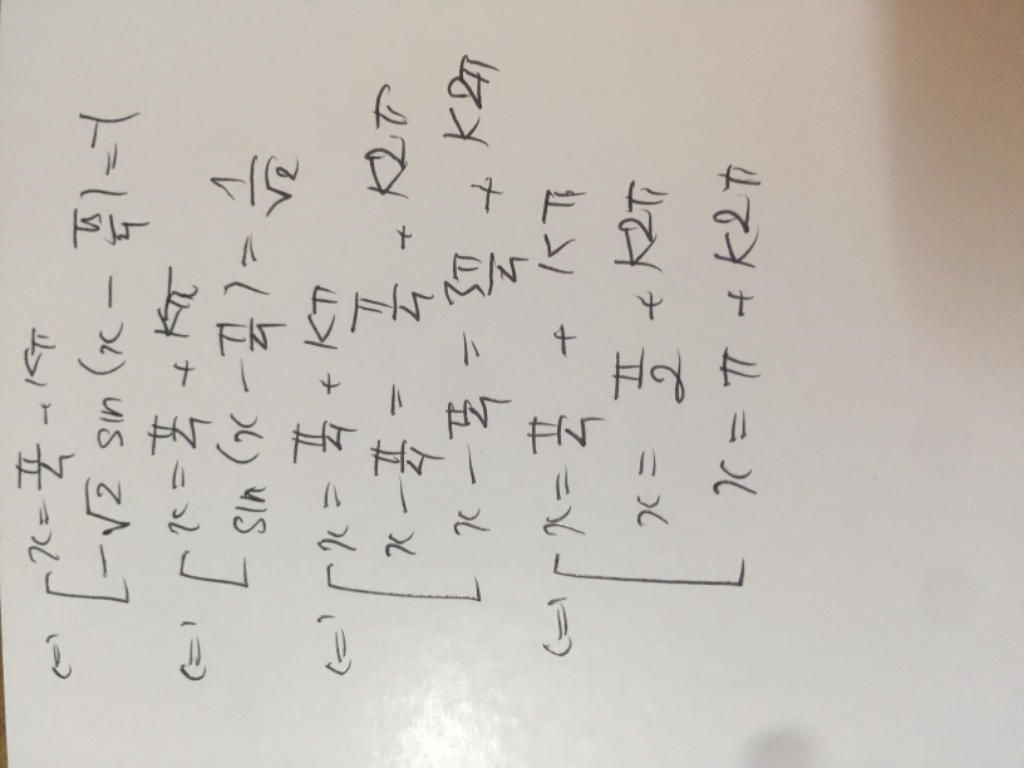 ⇔ [ x = π/4 + kπ
-√2 sin (x - π/4) = -1
⇔ [ x = π/4 + kπ
sin (x - π/4) = 1/√2
⇔ [ x = π/4 + kπ
x - π/4 = π/4 + k2π
x - π/4 = 3π/4 + k2π
⇔ [ x = π/4 + kπ
x = π/2 + k2π
x = π + k2π